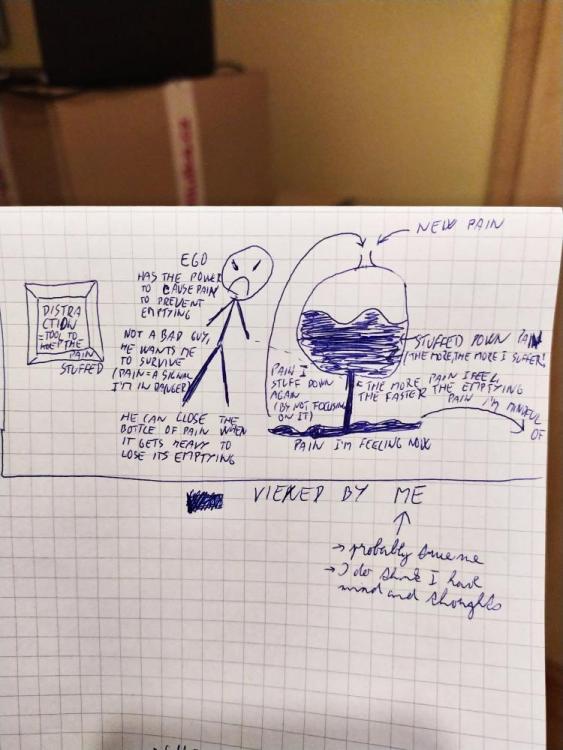 NEW PAIN
EGO
HAS THE POWER
TO CAUSE PAIN
TO PREVENT
EMPTYING
DISTRA
CTION
= TOOL TO
KEEP THE
PAIN
STUFFED
NOT A BAD GUY,
HE WANTS ME
TO SURVIVE
(PAIN = A SIGNAL
I'M IN DANGER)
HE CAN CLOSE THE
BOTTLE OF PAIN WHEN
IT GETS HEAVY TO
LOSE ITS EMPTYING
STUFFED DOWN PAIN
(THE MORE, THE MORE I SUFFER)
PAIN I
STUFF DOWN
AGAIN
(BY NOT FOCUSING
ON IT)
THE MORE PAIN I FEEL
THE FASTER THE EMPTYING
PAIN I'M MINDFUL
OF
PAIN I'M FEELING NOW
VIEWED BY ME
→ probably true me
→ I do think I have
mind and thoughts